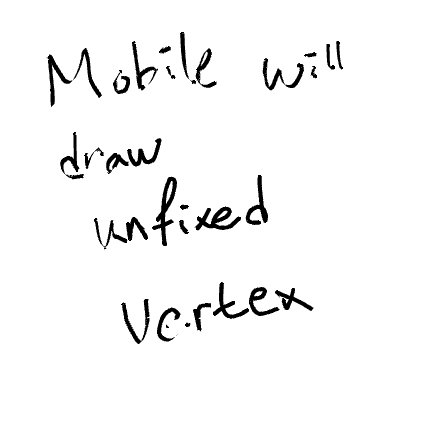 Mobile will
draw
unfixed
Vertex